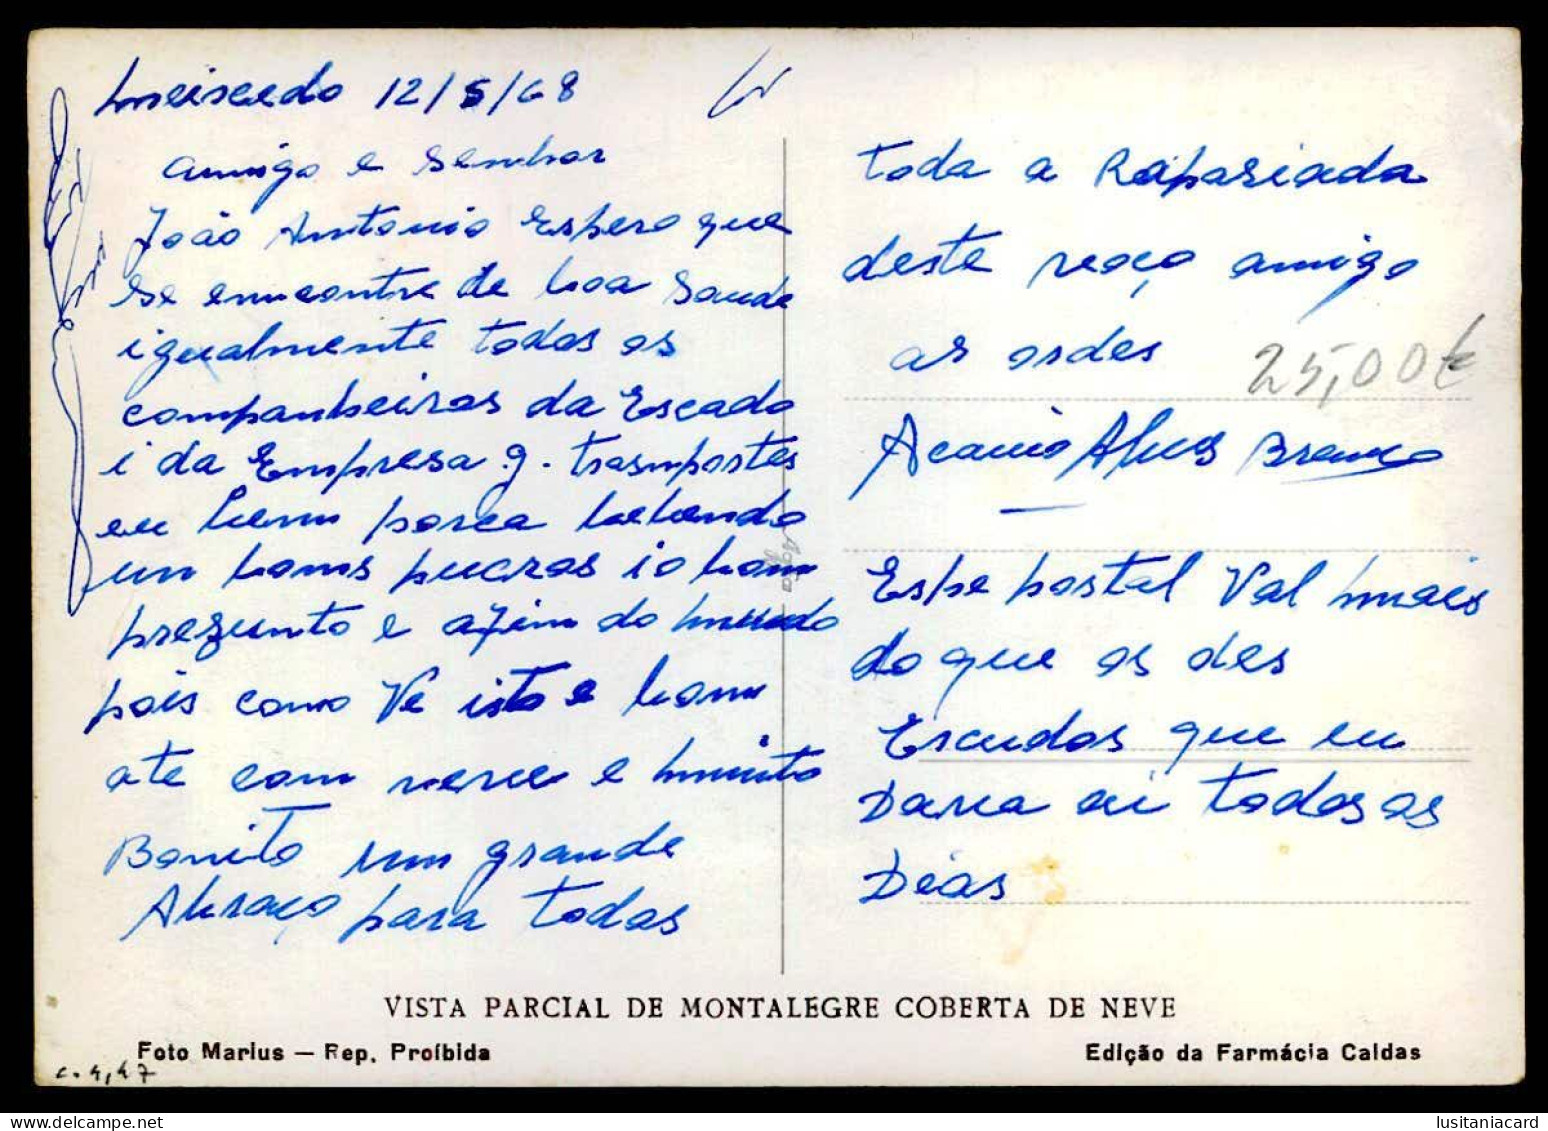 Meixedo 12/5/68
amigo e Senhor
João Antonio Espero que
se emcontre de boa Saude
igualmente todos os
companheiros da Escada
i da Empresa g. trasmportes
eu ca bebendo
un bons pucaros io bom
prezunto e afim do mundo
pois como Ve isto e bom
ate com neve e muito
Bonito um grande
Abraço para todos
toda a Rapasiada
deste voço amigo
as ordes
25,00€
Acacio Alves Branco
Espe postal Val mais
do que os des
Escudos que eu
Dava ai todos os
Dias
VISTA PARCIAL DE MONTALEGRE COBERTA DE NEVE
Foto Marius — Rep. Proíbida
Edição da Farmácia Caldas
c. 4,47
lusitaniacard